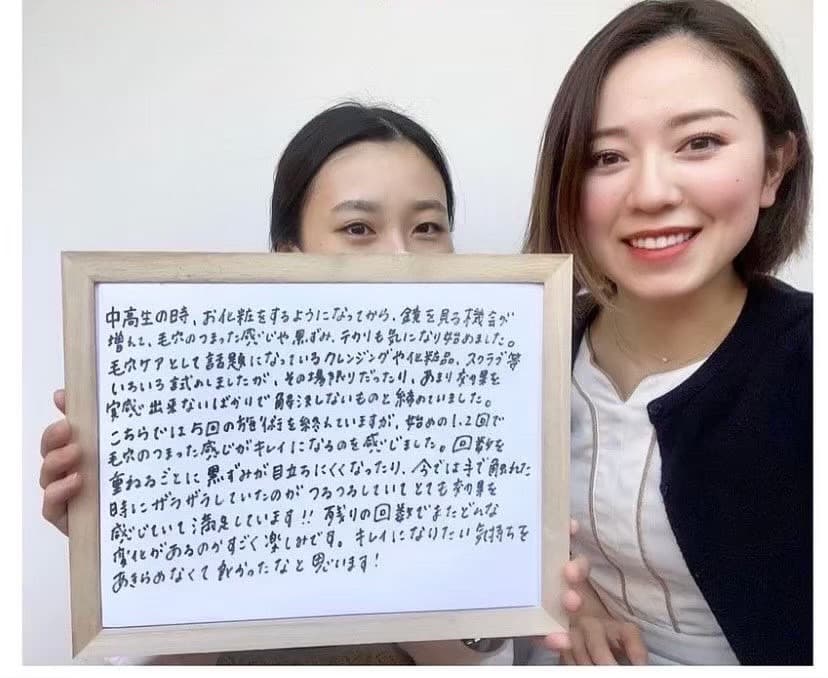 中高生の時、お化粧をするようになってから、鏡を見る機会が
増えて、毛穴のつまった感じや黒ずみ、テカリも気になり始めました。
毛穴ケアとして話題になっているクレンジングや化粧品、スクラブ等
いろいろ試しましたが、その場限りだったり、あまり効果を
実感出来ないばかりで解決しないものと諦めていました。
こちらでは5回の施術を終えていますが、始めの1.2回で
毛穴のつまった感じがキレイになるのを感じました。回数を
重ねるごとに黒ずみが目立ちにくくなったり、今では手で触れた
時にザラザラしていたのがつるつるしていてとても効果を
感じていて満足しています!! 残りの回数でまたどんな
変化があるのかすごく楽しみです。キレイになりたい気持ちを
あきらめなくて良かったなと思います!